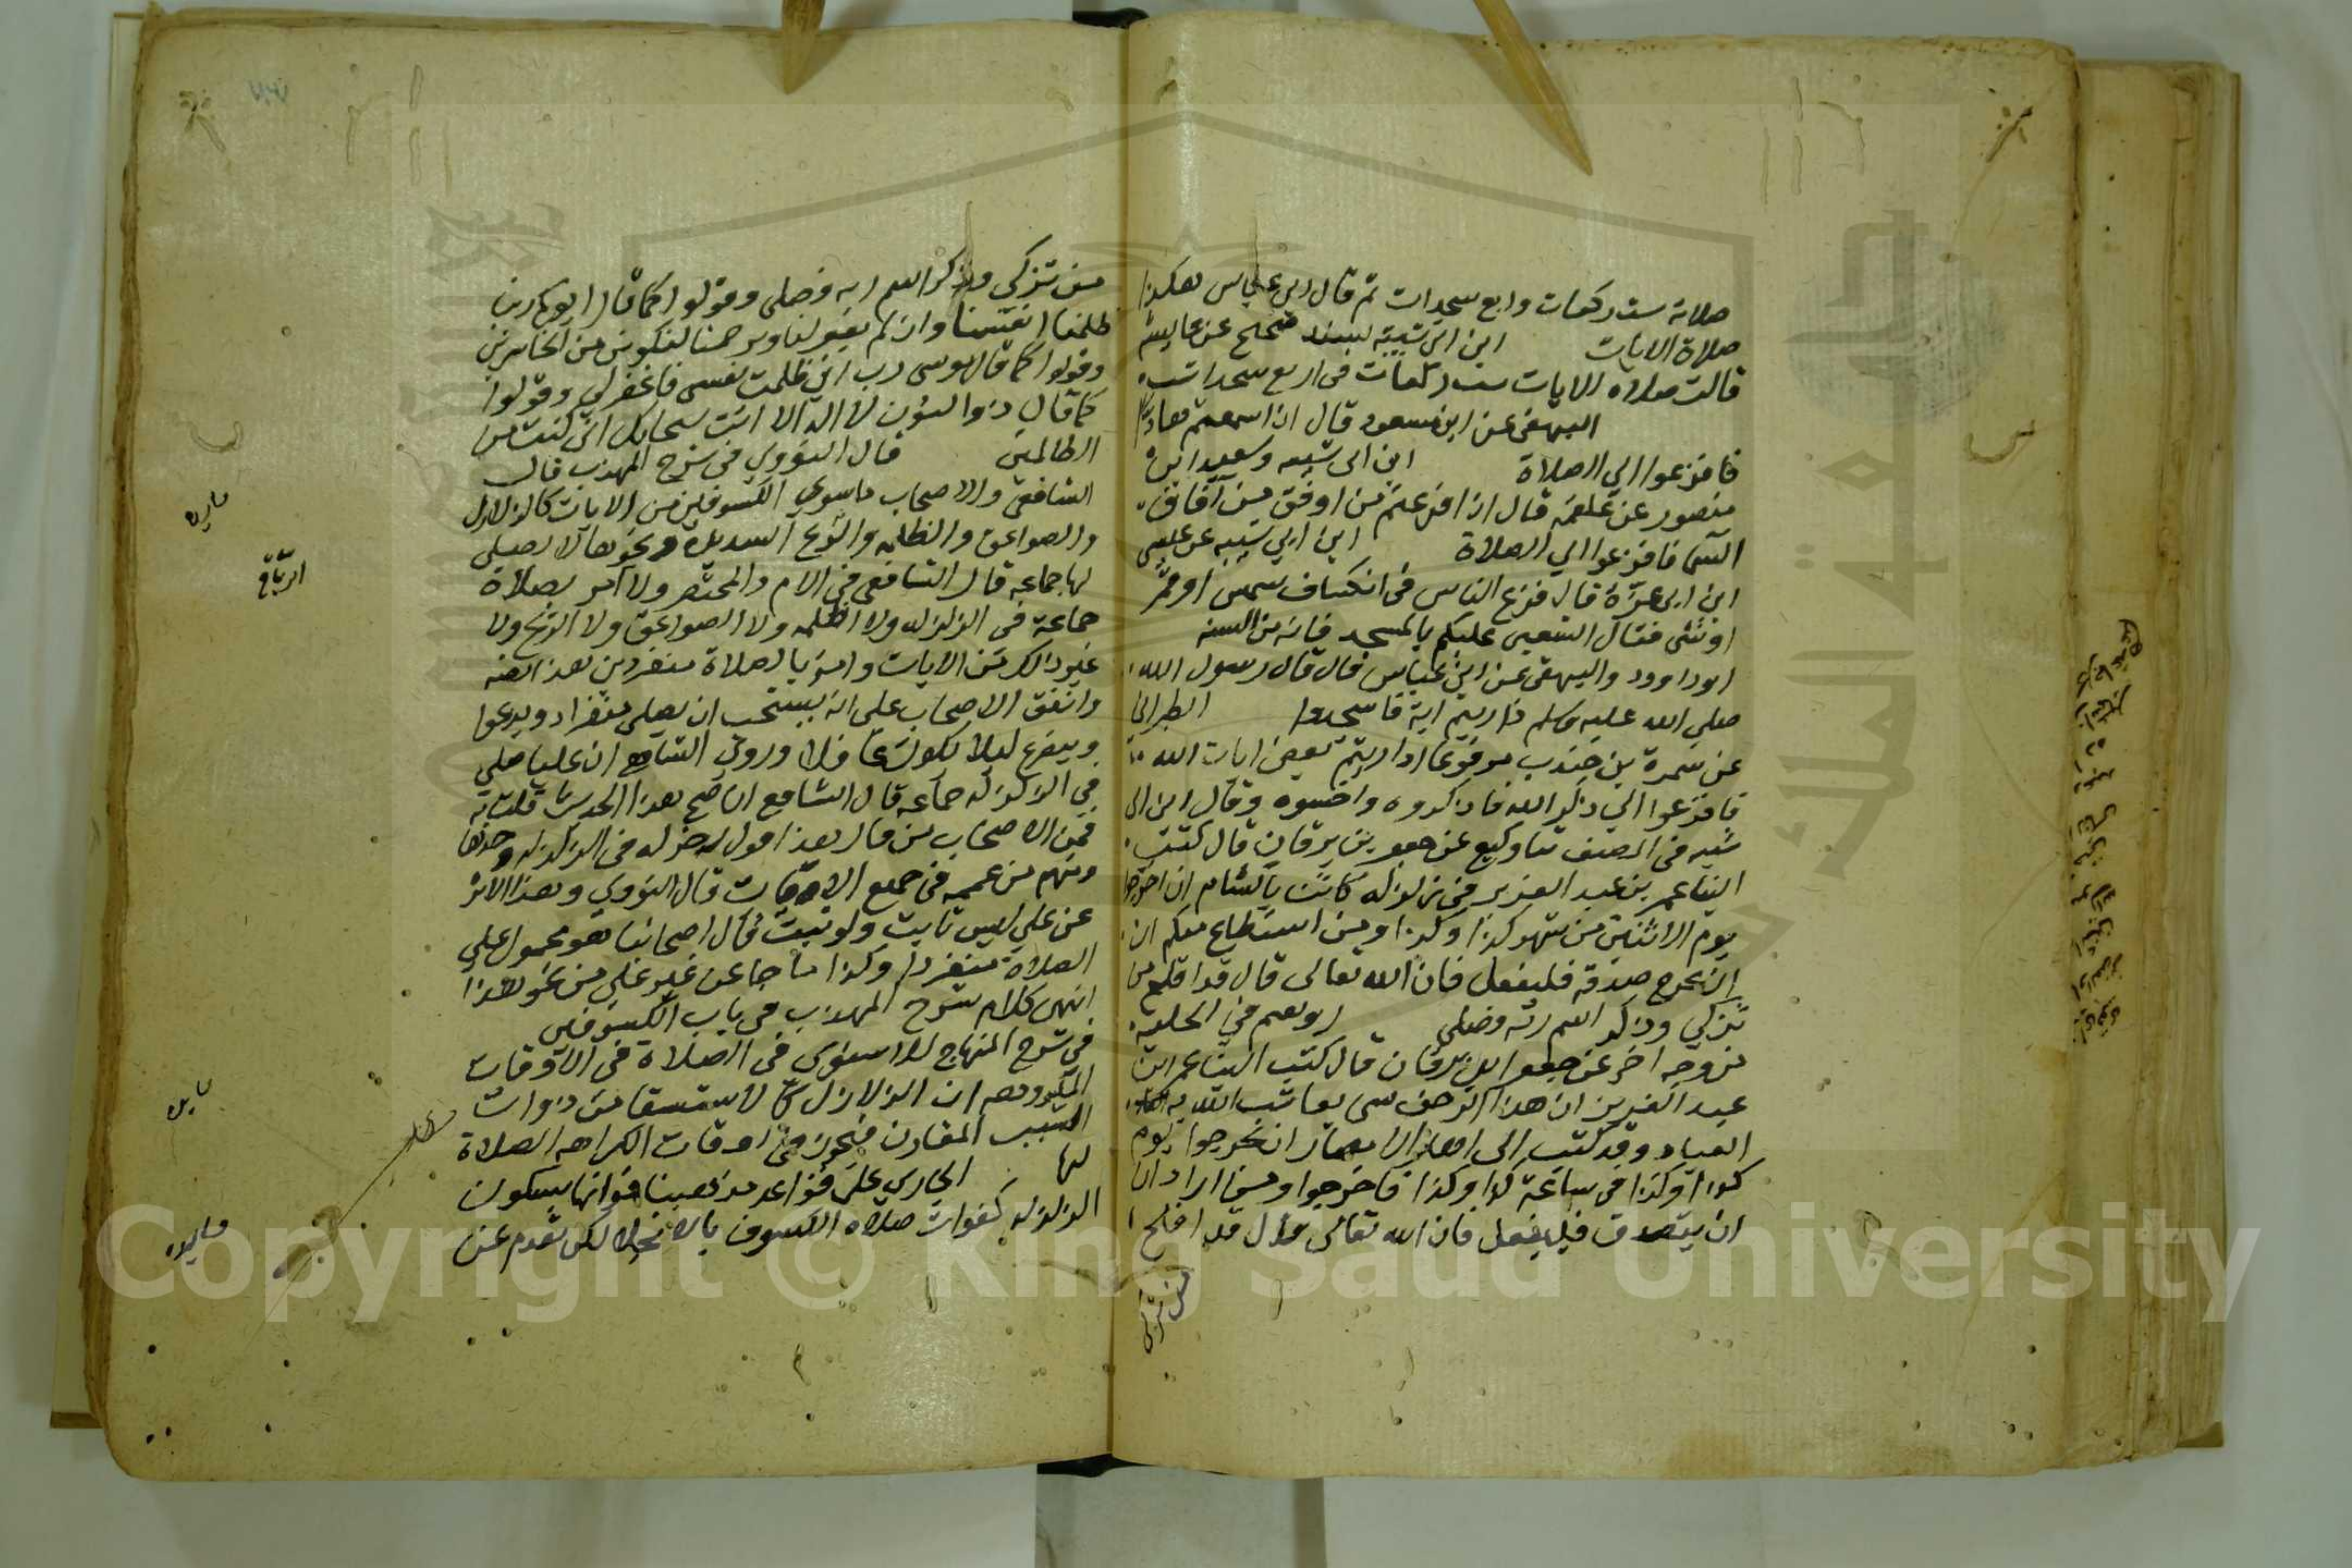 صلاته ست ركعات واربع سجدات ثم قال ابن عباس هكذا
صلاة الايات ابن ابى شيبة بسند صحيح عن عايشة
قالت صلاه الايات ست ركعات فى اربع سجدات
البيهقى عن ابن مسعود قال اذا سمعتم هادا
فافزعوا الي الصلاة ابن ابى شيبه وسعيد ابن
منصور عن علقمه قال اذا فزعتم من افق من آفاق
السما فافزعوا الي الصلاة ابن ابى شيبه عن عيسى
ابن ابى عزة قال فزع الناس فى انكساف شمس او قمر
او شئ فقال الشعبى عليكم بالمسجد فانه من السنه
ابو داوود والبيهقى عن ابن عباس قال قال رسول الله
صلى الله عليه وسلم اذا رايتم اية فاسجدوا الطبراني
عن سمرة بن جندب مرفوعا اذا رايتم بعض ايات الله
فافزعوا الي ذكر الله فاذكروه واخشوه وقال ابن ابى
شيبه فى المصنف ثنا وكيع عن جعفر بن برقان قال كتب
الينا عمر بن عبد العزيز فى زلزلة كانت بالشام ان اخرجوا
يوم الاثنين من شهر كذا وكذا ومن استطاع منكم ان
ان يخرج صدقة فليفعل فان الله تعالى قال قد افلح من
تزكى وذكر اسم ربه فصلى ابو نعيم فى الحلية
من وجه اخر عن جعفر ابن برقان قال كتب الينا عمر ابن
عبد العزيز ان هذا الرجف شى يعاتب الله به
العباد وقد كتب الى اهل الامصار ان يخرجوا يوم
كذا وكذا فى ساعة كذا وكذا فاخرجوا ومن اراد ان
ان يتصدق فليفعل فان الله تعالى قال قد افلح
من تزكى
من تزكى وذكر اسم ربه فصلى وقولوا كما قال ابوكم ربنا
ظلمنا انفسنا وان لم تغفر لنا وترحمنا لنكونن من الخاسرين
وقولوا كما قال موسى رب انى ظلمت نفسى فاغفر لي وقولوا
كما قال ذو النون لا اله الا انت سبحانك انى كنت من
الظالمين قال النووى فى شرح المهذب قال
الشافعى والاصحاب ما سوى الكسوفين من الايات كالزلازل
والصواعق والظلمه والريح الشديده ونحوها لا يصلى
لها جماعه قال الشافعى فى الام والمختصر ولا آمر بصلاة
جماعة فى الزلزله ولا الظلمه ولا الصواعق ولا الريح ولا
غير ذلك من الايات وامر بالصلاة منفردين هذا نصه
واتفق الاصحاب على انه يستحب ان يصلى منفردا ويدعوا
ويتضرع ليلا يكون غافلا وروى الشافعى ان عليا صلى
فى الزلزله جماعه قال الشافعى ان صح هذا الحديث قلت به
فمن الاصحاب من قال هذا قول اخر له فى الزلزله وحدها
ومنهم من عممه فى جميع الايات قال النووى وهذا الاثر
عن على ليس ثابت ولو ثبت قال اصحابنا هو محمول على
الصلاة منفردا وكذا ما جا عن غير على من نحو هذا
انتهى كلام شرح المهذب فى باب الكسوفين
فى شرح المنهاج للاسنوى فى الصلاة فى الاوقات
المكروهه ان الزلازل كالاستسقا من ذوات
السبب المقارن فيجوز فى اوقات الكراهه الصلاة
لها الجارى على قواعد مذهبنا فواتها بسكون
الزلزله كفوات صلاه الكسوف بالانجلا لكن تقدم عن